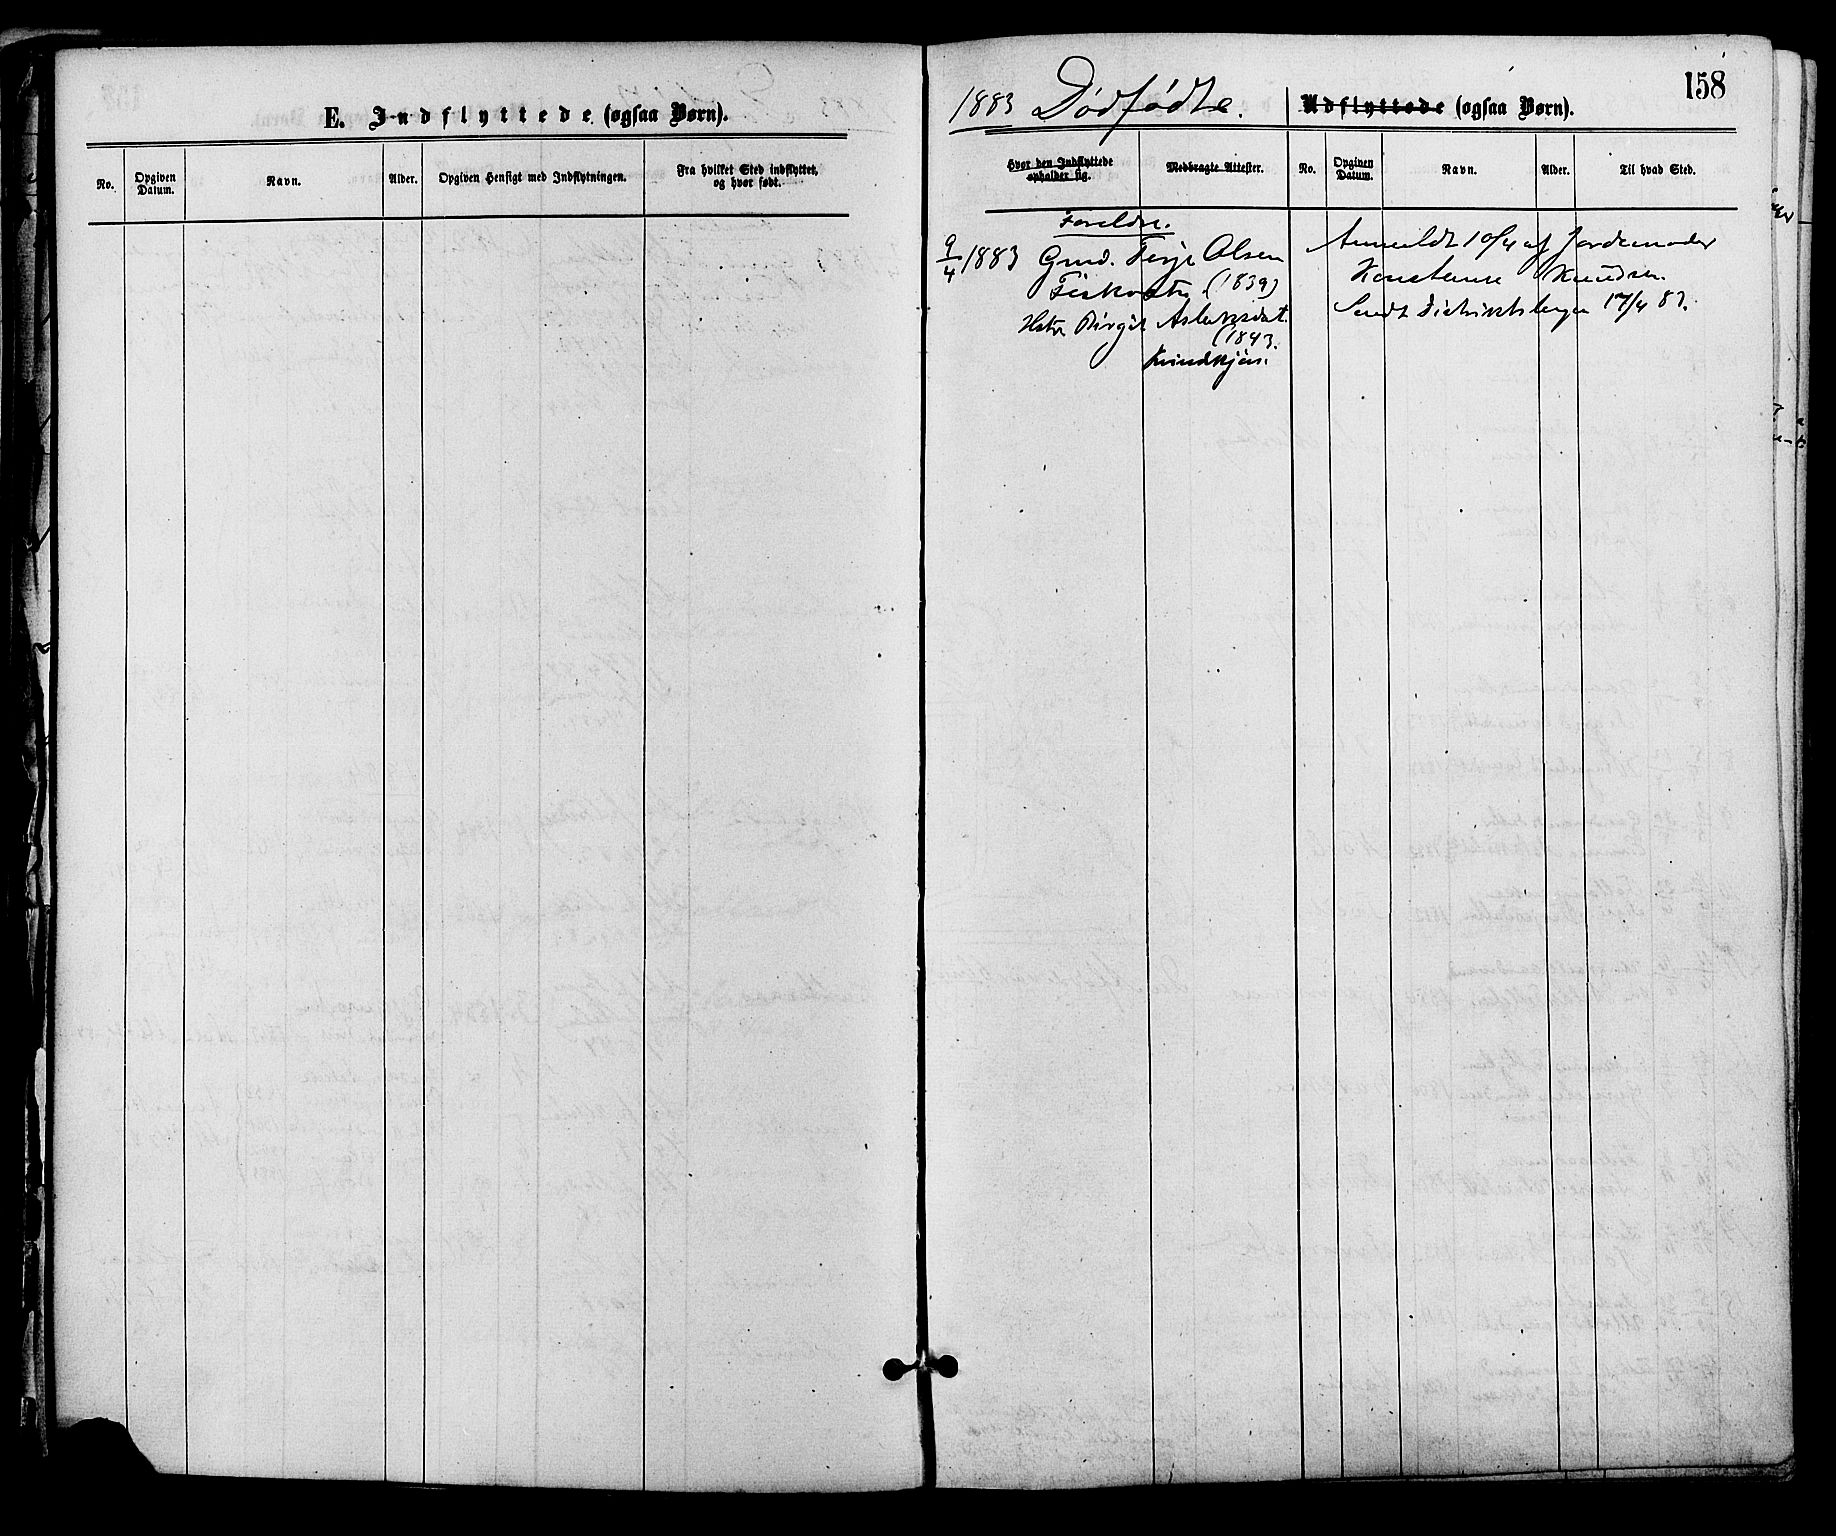 E. Indflyttede (ogsaa Børn).
No.
Opgiven Datum.
Navn.
Alder.
Opgiven Hensigt med Indflytningen.
Fra hvilket Sted indflyttet, og hvor født.
158
1883 Dødfødte.
Udflyttede (ogsaa Børn).
Hvor den Indflyttede opholder sig.
Medbragte Attester.
No.
Opgiven Datum.
Navn.
Alder.
Til hvad Sted.
Foreldre.
9/4 1883 Gmd. Terje Olsen
(1839)
Hstr Birgit Aslaksdat.
(1843.
Kvindkjøn.
Anmeldt 10/4 af Jordemoder
Konstanse Knudsen
Sendt Distriktslægen 17/4 83.